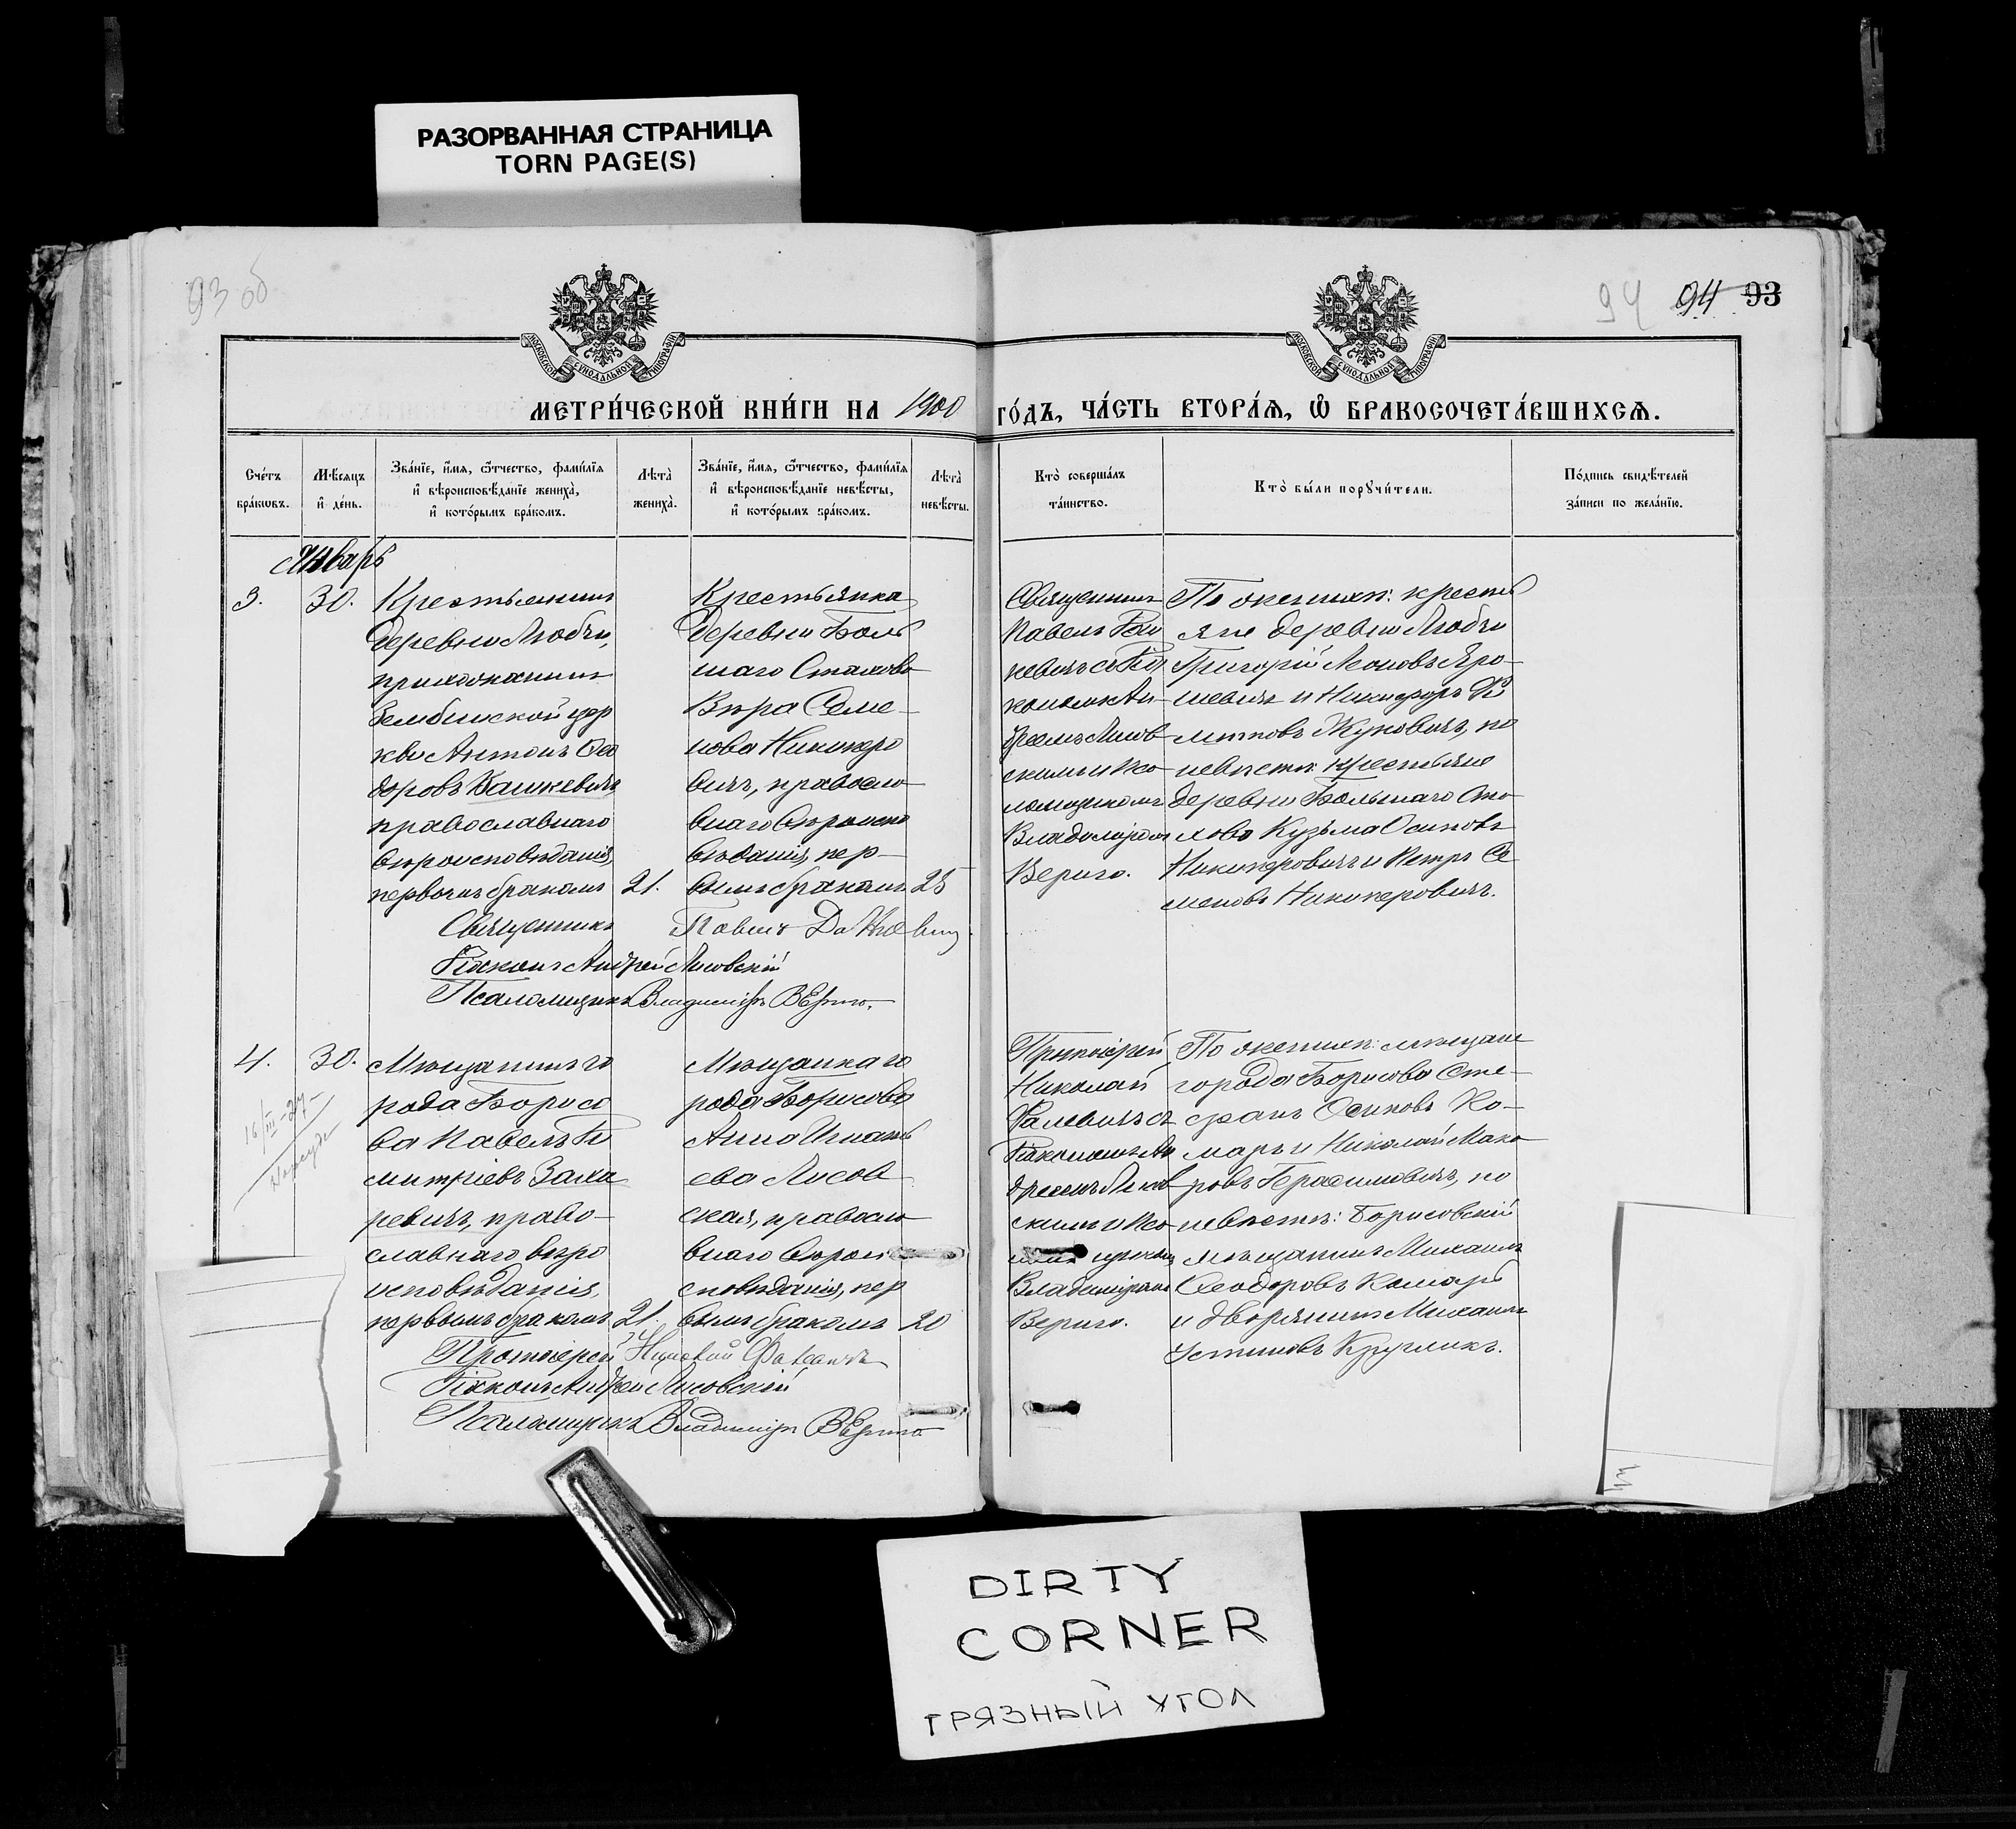 РАЗОРВАННАЯ СТРАНИЦА
TORN PAGE(S)
93 об
94 94 93
МОСКОВСКОЙ СѴНОДАЛЬНОЙ ТИПОГРАФІИ
МОСКОВСКОЙ СѴНОДАЛЬНОЙ ТИПОГРАФІИ
МЕТРИ́ЧЕСКОЙ КНИ́ГИ НА 1900 ГО́ДЪ, ЧА́СТЬ ВТОРА́Ѧ, Ѽ БРАКОСОЧЕТА́ВШИХСѦ.
Сче́тъ бра́кѡвъ.
Мѣ́сѧцъ и҆ де́нь.
Зва́нїе, и҆́мѧ, ѻ҆́тчество, фами́лїѧ и҆ вѣроисповѣ́данїе жениха̀, и҆ кото́рымъ бра́комъ.
Лѣта̀ жениха̀.
Зва́нїе, и҆́мѧ, ѻ҆́тчество, фами́лїѧ и҆ вѣроисповѣ́данїе невѣ́сты, и҆ кото́рымъ бра́комъ.
Лѣта̀ невѣ́сты.
Кто̀ соверша́лъ та́инство.
Кто̀ бы́ли порꙋчи́тели.
По́дпись свидѣ́телей за́писи по жела́нїю.
Январь
3.
30.
Крестьянинъ
деревни Любчи,
прихожанинъ
Зембинской цер
кви Антонъ Ѳео
доровъ Вашкевичъ
православнаго
вѣроисповѣданія,
первымъ бракомъ
21.
Крестьянка
деревни Боль
шаго Стахова
Вѣра Семе-
нова Никипро
вичъ, правосла
внаго вѣроиспо
вѣданія, пер-
вымъ бракомъ
25
Священникъ
Павелъ
кономъ Ан-
дреемъ Лисов
скимъ и Пса
ломщикомъ
Владиміромъ
Вериго.
По женихѣ: кресть
яне деревни Любчи
Григорій Леоновъ Яро-
шевичъ и Никифоръ Фи
липповъ Жуковичъ, по
невѣстѣ: крестьяне
деревни Большаго Ста
хова Кузьма Осиповъ
Никиперовичъ и Петръ Се
меновъ Никиперовичъ.
Священникъ Павелъ
Діаконъ Андрей Лисовскій
Псаломщикъ Владиміръ Вериго.
4.
30.
16/III-27-
Мѣщанинъ го
рода Борисо
ва Павелъ Ди
митріевъ Заха
ревичъ, право-
славнаго вѣро
исповѣданія,
первымъ бракомъ
21.
Мѣщанка го
рода Борисова
Анна Игнать
ева Лисов
ская, правосла
внаго вѣрои
сповѣданія, пер
вымъ бракомъ
20
Протоіерей
Николай
Фалевичъ съ
Діакономъ Ан
дреемъ Лисов
скимъ и Пса
щикомъ
Владиміромъ
Вериго.
По женихѣ: мѣщане
города Борисова Сте-
фанъ Осиповъ Ко-
маръ и Николай Мака
ровъ Герасимовичъ, по
невѣстѣ: Борисовскій
мѣщанинъ Михаилъ
Ѳеодоровъ Комаръ
и дворянинъ Михаилъ
Устиновъ Кругликъ.
Протоіерей Николай Фалевичъ
Діаконъ Андрей Лисовскій
Псаломщикъ Владиміръ Вериго
DIRTY
CORNER
ГРЯЗНЫЙ УГОЛ